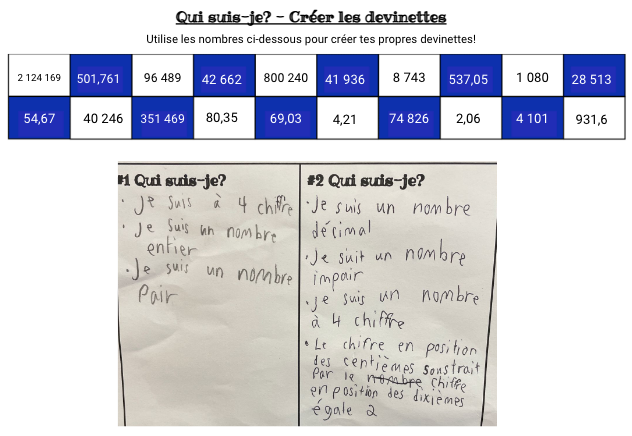 Qui suis-je? - Créer les devinettes
Utilise les nombres ci-dessous pour créer tes propres devinettes!
2 124 169 501,761 96 489 42 662 800 240 41 936 8 743 537,05 1 080 28 513
54,67 40 246 351 469 80,35 69,03 4,21 74 826 2,06 4 101 931,6
#1 Qui suis-je?
• Je suis à 4 chiffre
• Je suis un nombre
entier
• Je suis un nombre
Pair
#2 Qui suis-je?
• Je suis un nombre
décimal
• Je suit un nombre
impair
• je suis un nombre
à 4 chiffre
• Le chifre en position
des centièmes soustrait
Par le nombre chiffre
en position des dixièmes
égale 2